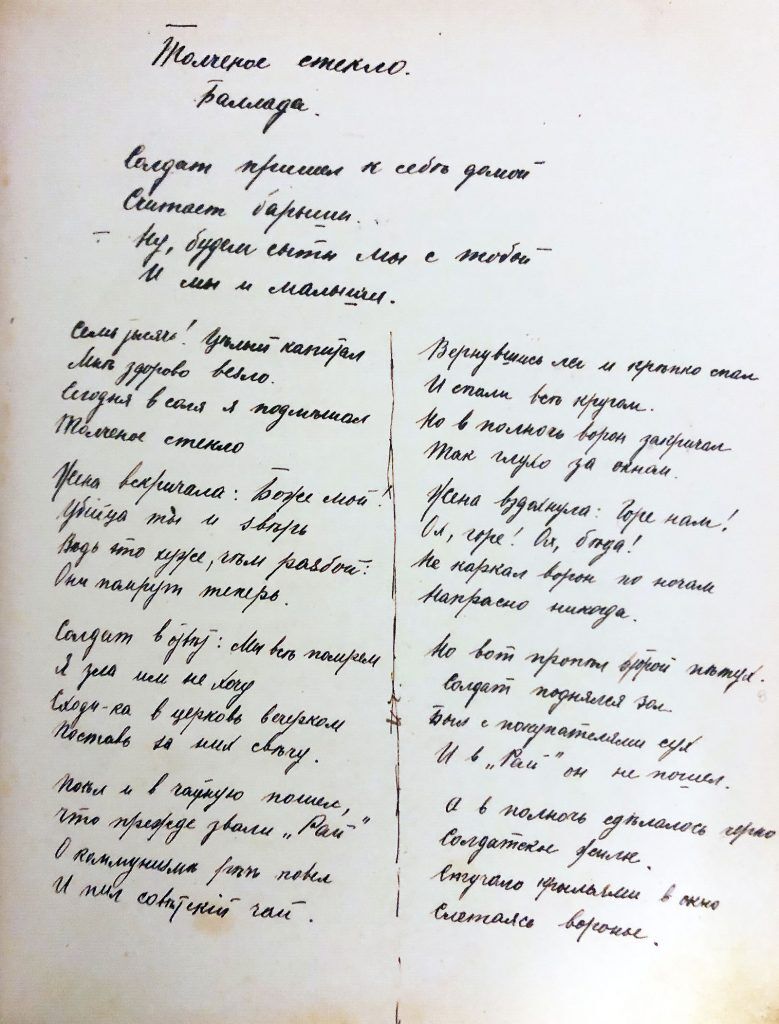 Толченое стекло.
Баллада.
Солдат пришел к себѣ домой
Считает барыши.
— Ну, будем сыты мы с тобой
И мы и малыши.
Семь тысяч! Цѣлый капитал
Мнѣ здорово везло.
Сегодня в соль я подмѣшал
Толченое стекло
Жена вскричала: Боже мой!
Убійца ты и звѣрь
Вѣдь это хуже, чѣм разбой:
Они помрут теперь.
Солдат в отвѣт: Мы всѣ помрем
Я зла им не хочу
Сходи-ка в церковь вечерком
Поставь за них свѣчу.
Поѣл и в чайную пошел,
Что прежде звали „Рай"
О коммунизмѣ рѣчь повел
И пил совѣтскій чай.
Вернувшись лег и крѣпко спал
И спали всѣ кругом.
Но в полночь ворон закричал
Так глухо за окном.
Жена вздохнула: Горе нам!
Ох, горе! Ох, бѣда!
Не каркал ворон по ночам
Напрасно никогда.
Но вот пропѣл второй пѣтух.
Солдат поднялся зол.
Был с покупателями сух
И в „Рай" он не пошел.
А в полночь сдѣлалось черно
Солдатское жилье.
Стучало крыльями в окно
Слетаясь воронье.